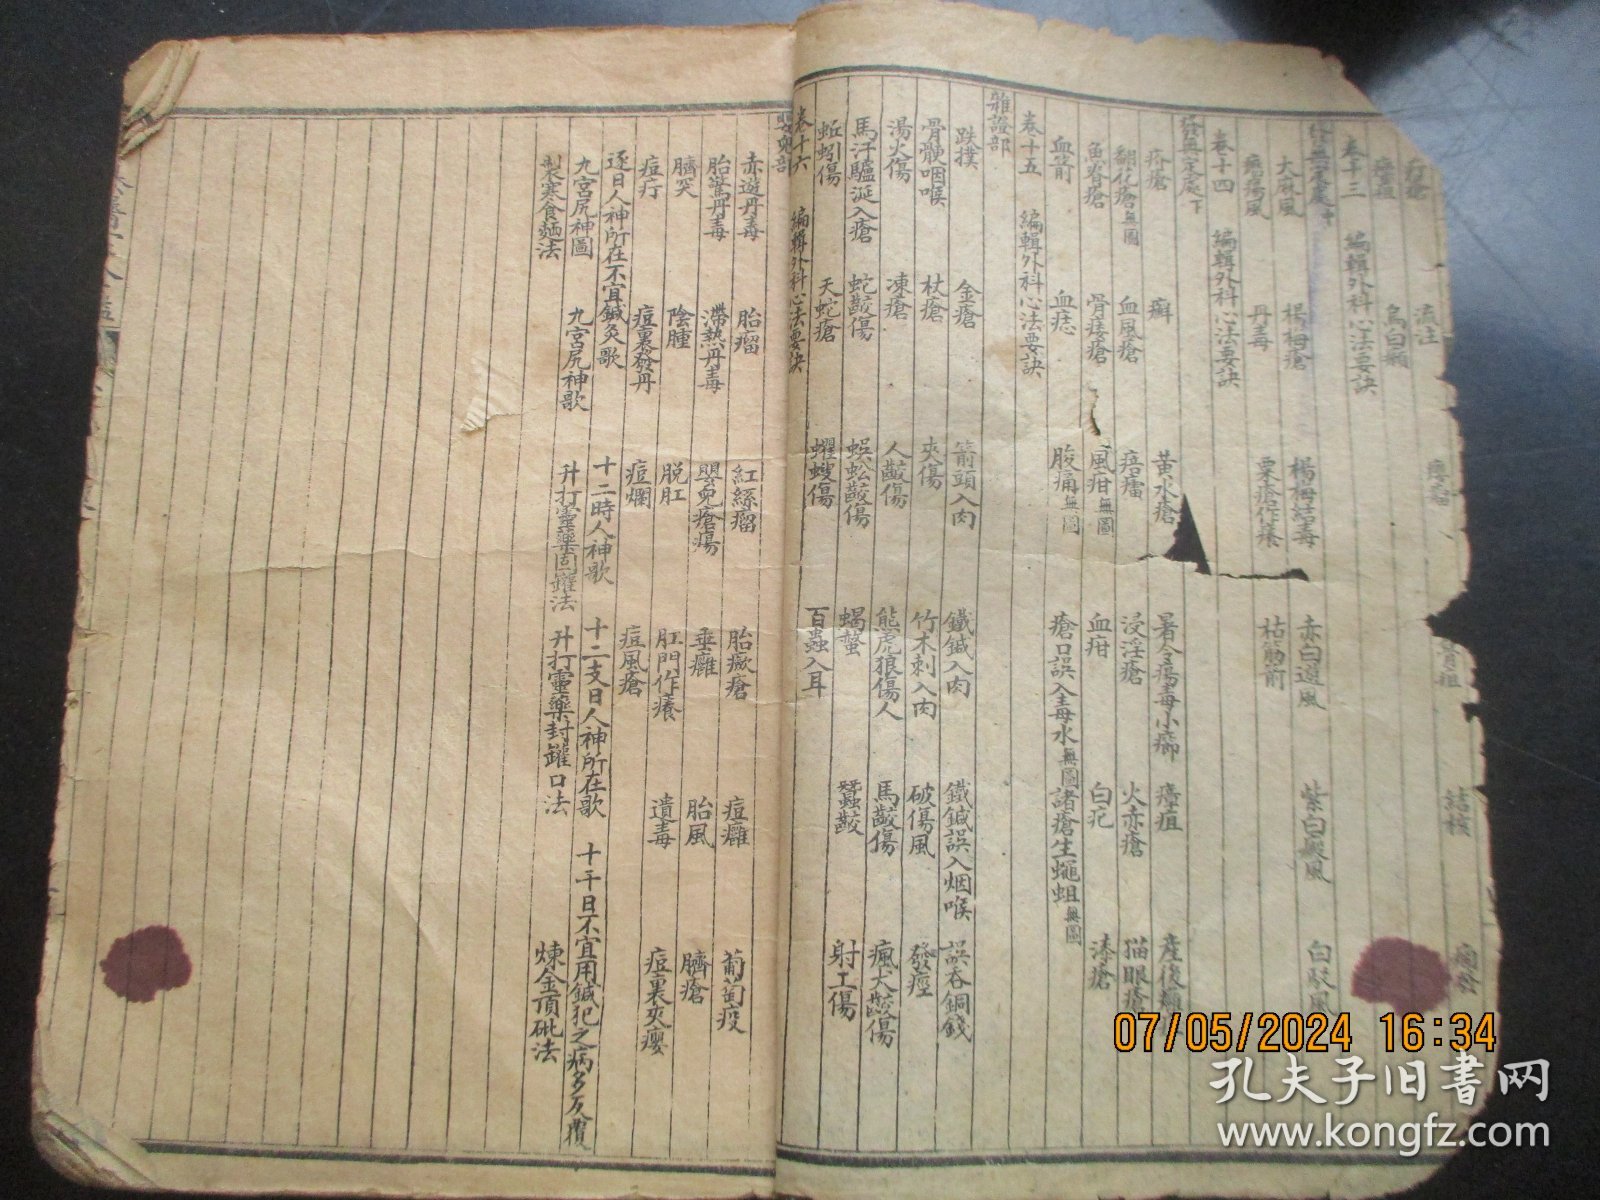 疔瘡 流注 結核
瘴疽 烏白癩
卷十三 編輯外科心法要訣
大麻風 楊梅瘡 楊梅結毒 赤白遊風 紫白癜風 白駁風
癘瘍風 丹毒 粟瘡作癢 枯筋箭
卷十四 編輯外科心法要訣
發無定處下
疥瘡 癬 黃水瘡 暑令瘍毒小癤 瘴疽 產後癰
翻花瘡無圖 血風瘡 㾦㿔 浸淫瘡 火赤瘡 猫眼瘡
魚脊瘡 骨痿瘡 風疳無圖 血疳 白疕 漆瘡
血箭 血痣 腋痛無圖 瘡口誤入毒水無圖 諸瘡生蠅蛆無圖
卷十五 編輯外科心法要訣
雜證部
跌撲 金瘡 箭頭入肉 鐵鍼入肉 鐵鍼誤入咽喉 誤吞銅錢
骨骾咽喉 杖瘡 夾傷 竹木刺入肉 破傷風 發痙
湯火傷 凍瘡 人齩傷 熊虎狼傷人 馬齩傷 瘋犬齩傷
馬汗驢涎入瘡 蛇齩傷 蜈蚣齩傷 蝎螫 蠶齩 射工傷
蚯蚓傷 天蛇瘡 蠼螋傷 百蟲入耳
卷十六 編輯外科心法要訣
嬰兒部
赤遊丹毒 胎瘤 紅絲瘤 胎㿈瘡 痘癰 葡萄疫
胎驚丹毒 滯熱丹毒 嬰兒瘡瘍 垂癰 胎風 臍瘡
臍突 陰腫 脱肛 肛門作癢 遺毒 痘裏夾癭
痘疔 痘裏發丹 痘爛 痘風瘡
逐日人神所在不宜鍼灸歌 十二時人神歌 十二支日人神所在歌 十干日不宜用鍼犯之病多反覆
九宮尻神圖 九宮尻神歌 升打靈藥固罐法 升打靈藥封罐口法 煉金頂砒法
製寒食麵法
07/05/2024 16:34
孔夫子旧書网
www.kongfz.com